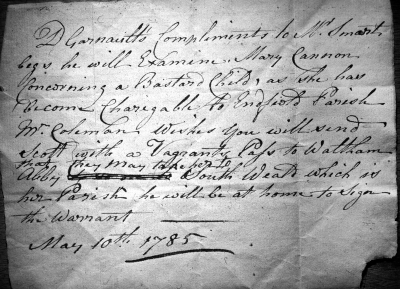 D Garnault's Compliments to Mr. Smart
begs he will Examine Mary Cannon
Concerning a Bastard Child, as she has
become Charegable to Enfield Parish
Mr. Coleman, Wishes You will send
Scott with a Vagrants Pass to Waltham
Abby they may take her to South Weald which is
her Parish he will be at home to Sign
the Warrant
May 10th 1785